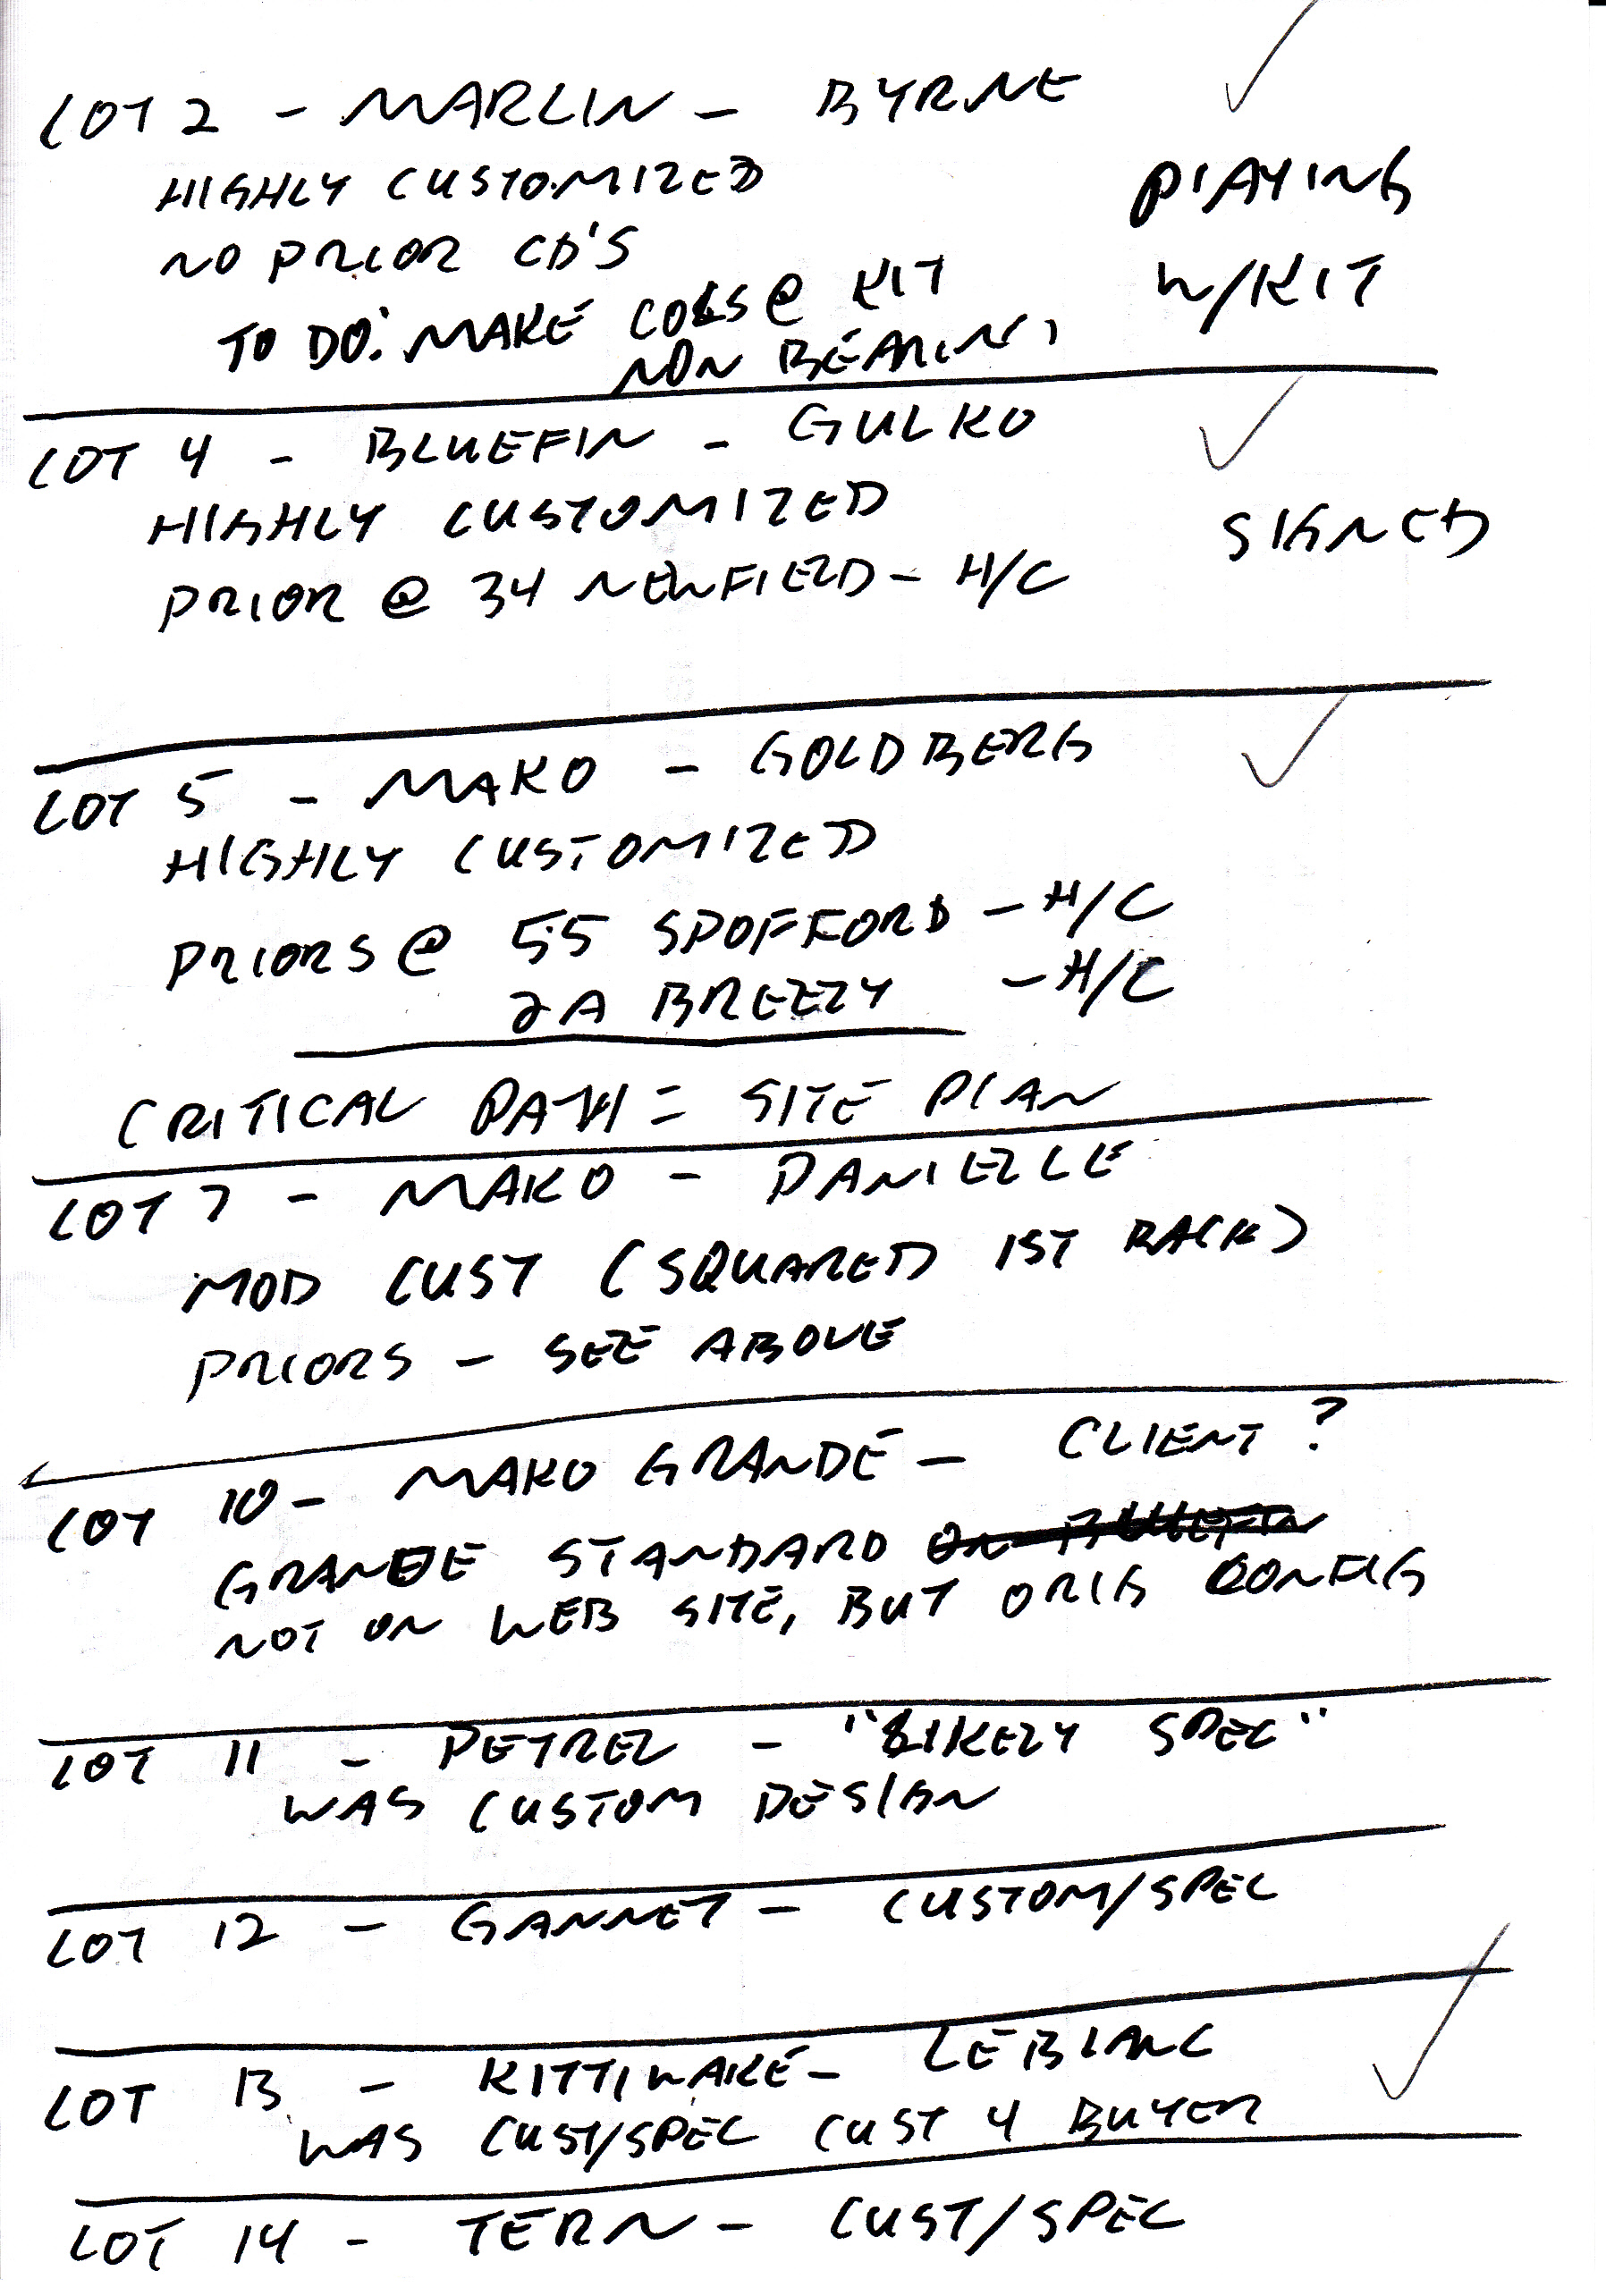 LOT 2 - MARLIN - BYRNE ✓
HIGHLY CUSTOMIZED
PLAYING
NO PRIOR CD'S
W/KIT
TO DO: MAKE COLS @ KIT
NON BEARING
LOT 4 - BLUEFIN - GULKO ✓
HIGHLY CUSTOMIZED
SIGNED
PRIOR @ 34 NEWFIELD - H/C
LOT 5 - MAKO - GOLDBERG ✓
HIGHLY CUSTOMIZED
PRIORS @ 55 SPOFFORD - H/C
2A BREEZY - H/C
CRITICAL PATH = SITE PLAN
LOT 7 - MAKO - DANIELLE
MOD CUST (SQUARED 1ST BACK)
PRIORS - SEE ABOVE
LOT 10 - MAKO GRANDE - CLIENT?
GRANDE STANDARD
NOT ON WEB SITE, BUT ORIG CONFIG
LOT 11 - PETREL - "LIKELY SPEC"
WAS CUSTOM DESIGN
LOT 12 - GANNET - CUSTOM/SPEC
LOT 13 - KITTIWAKE - LEBLANC ✓
WAS CUST/SPEC CUST 4 BUYER
LOT 14 - TERN - CUST/SPEC